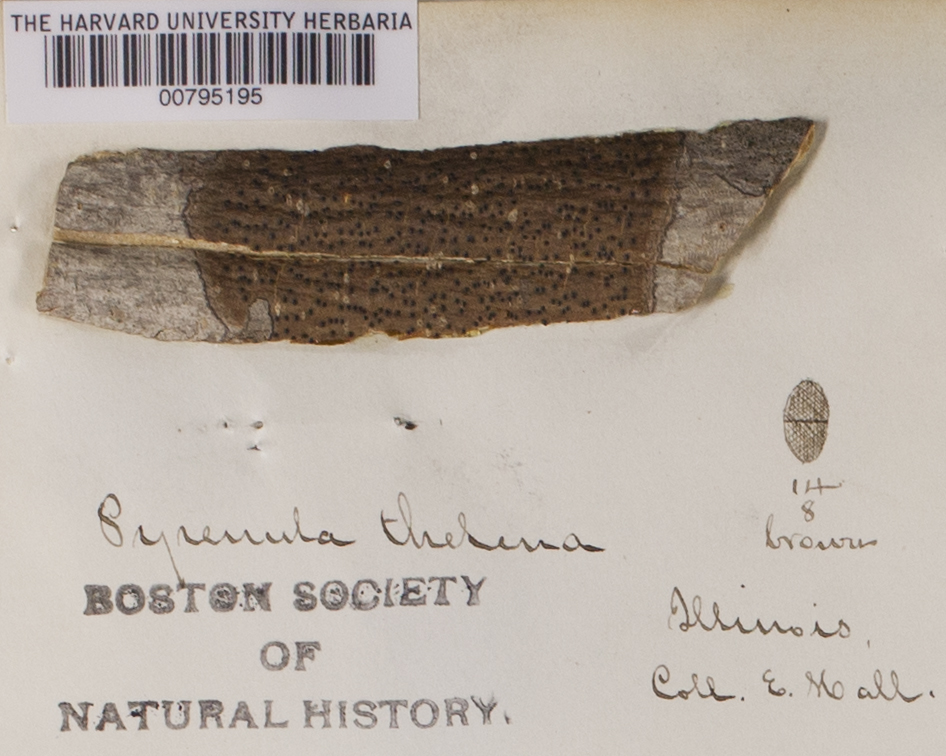 THE HARVARD UNIVERSITY HERBARIA
00795195
14
8
brown
Pyrenula thelena
BOSTON SOCIETY
OF
NATURAL HISTORY.
Illinois,
Coll. E. Hall.